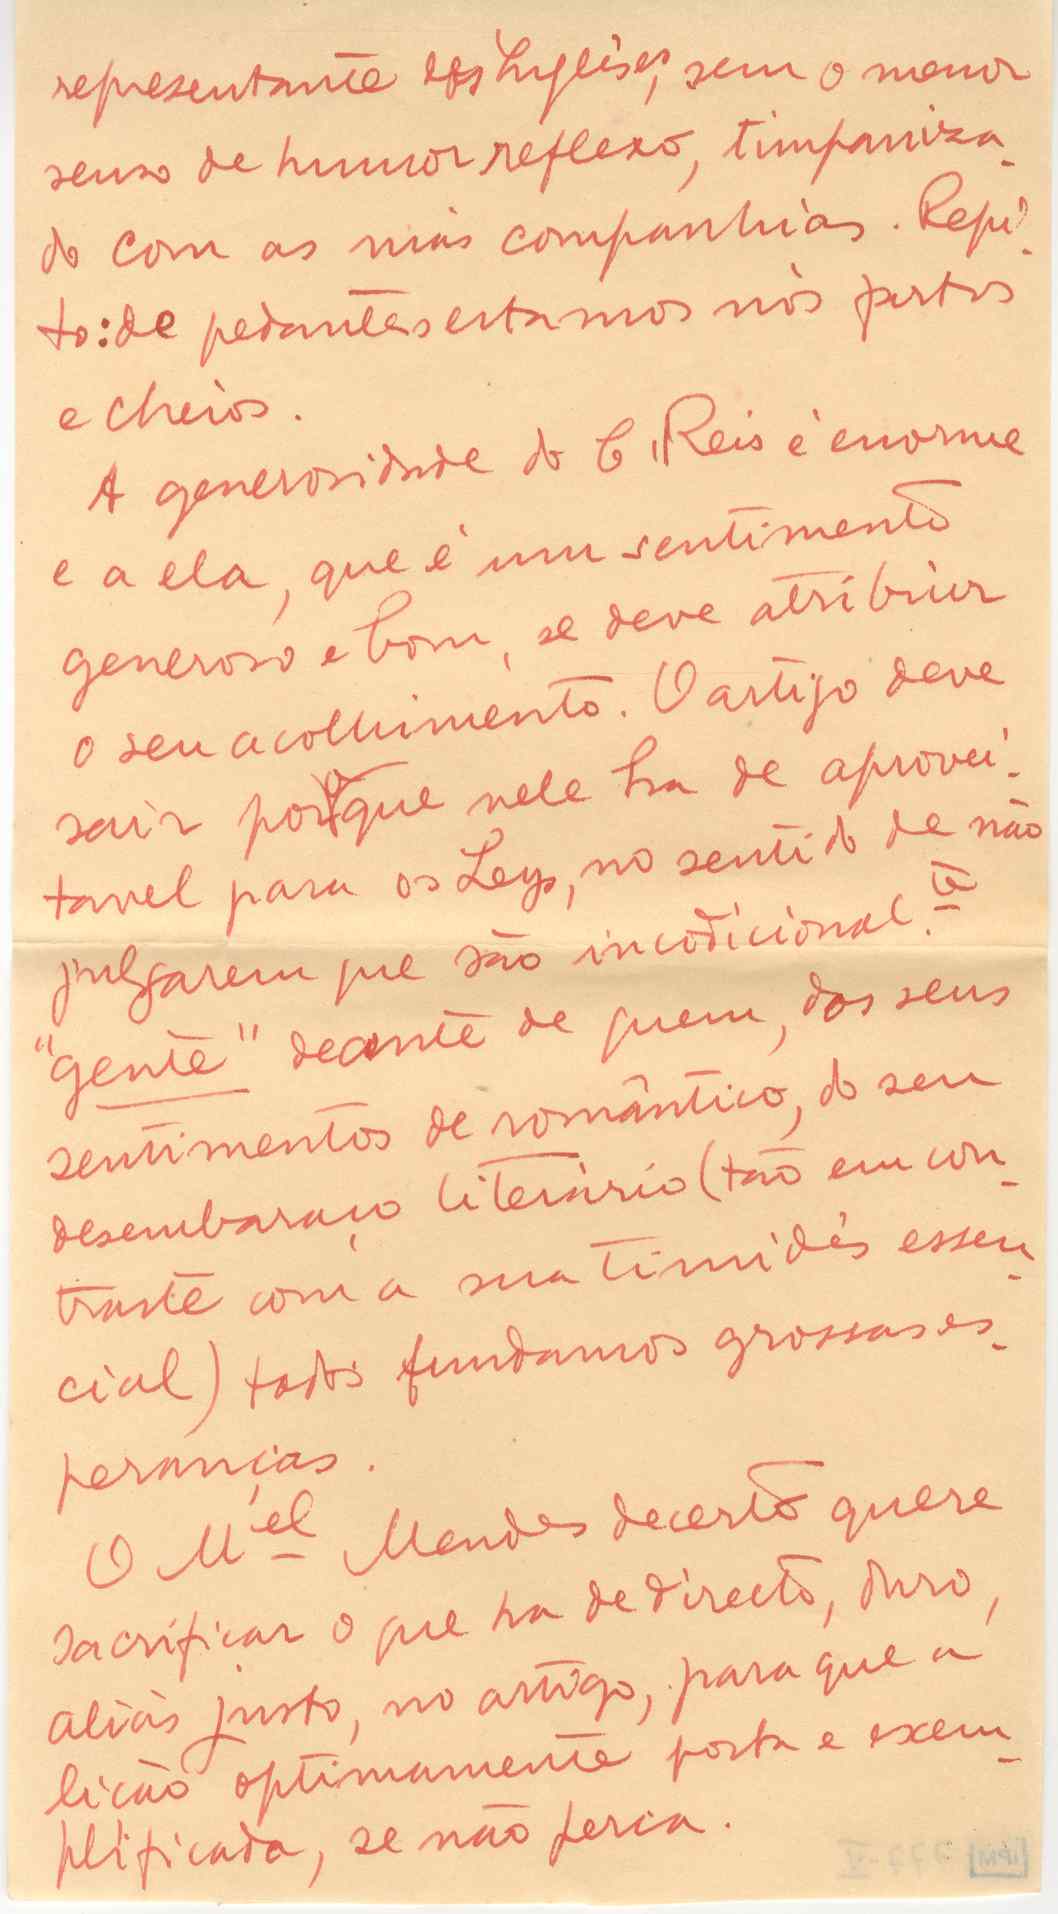 representante dos Inglêses, sem o menor
senso de humor reflexo, timpaniza-
do com as más companhias. Repi-
to: de pedantes estamos nós fartos
e cheios.
A generosidade do C. Reis é enorme
e a ela, que é um sentimento
generoso e bom, se deve atribuir
o seu acolhimento. O artigo deve
sair porque nele ha de aprovei-
tavel para os Leys, no sentido de não
julgarem que são incodicional.te
"gente" deante de quem, dos seus
sentimentos de romântico, do seu
desembaraço literário (tão em con-
traste com a sua timidês essen-
cial) todos fundamos grossas es-
peranças.
O M.el Mendes decerto quere
sacrificar o que ha de directo, duro,
aliás justo, no artigo, para que a
lição optimamente posta e exem-
plificada, se não perca.